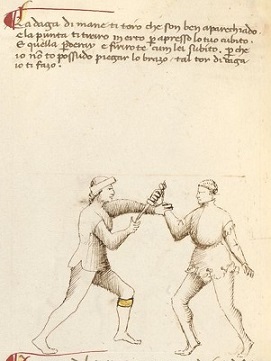 La daga di mane ti toro che son ben aparechiado.
E la punta ti tiraro in erto p apresso lo tuo cubito.
E quella p derai e firiro te cum lei subito. p che
io non to possudo piegar lo brazo tal tor di daga
io ti fazo.